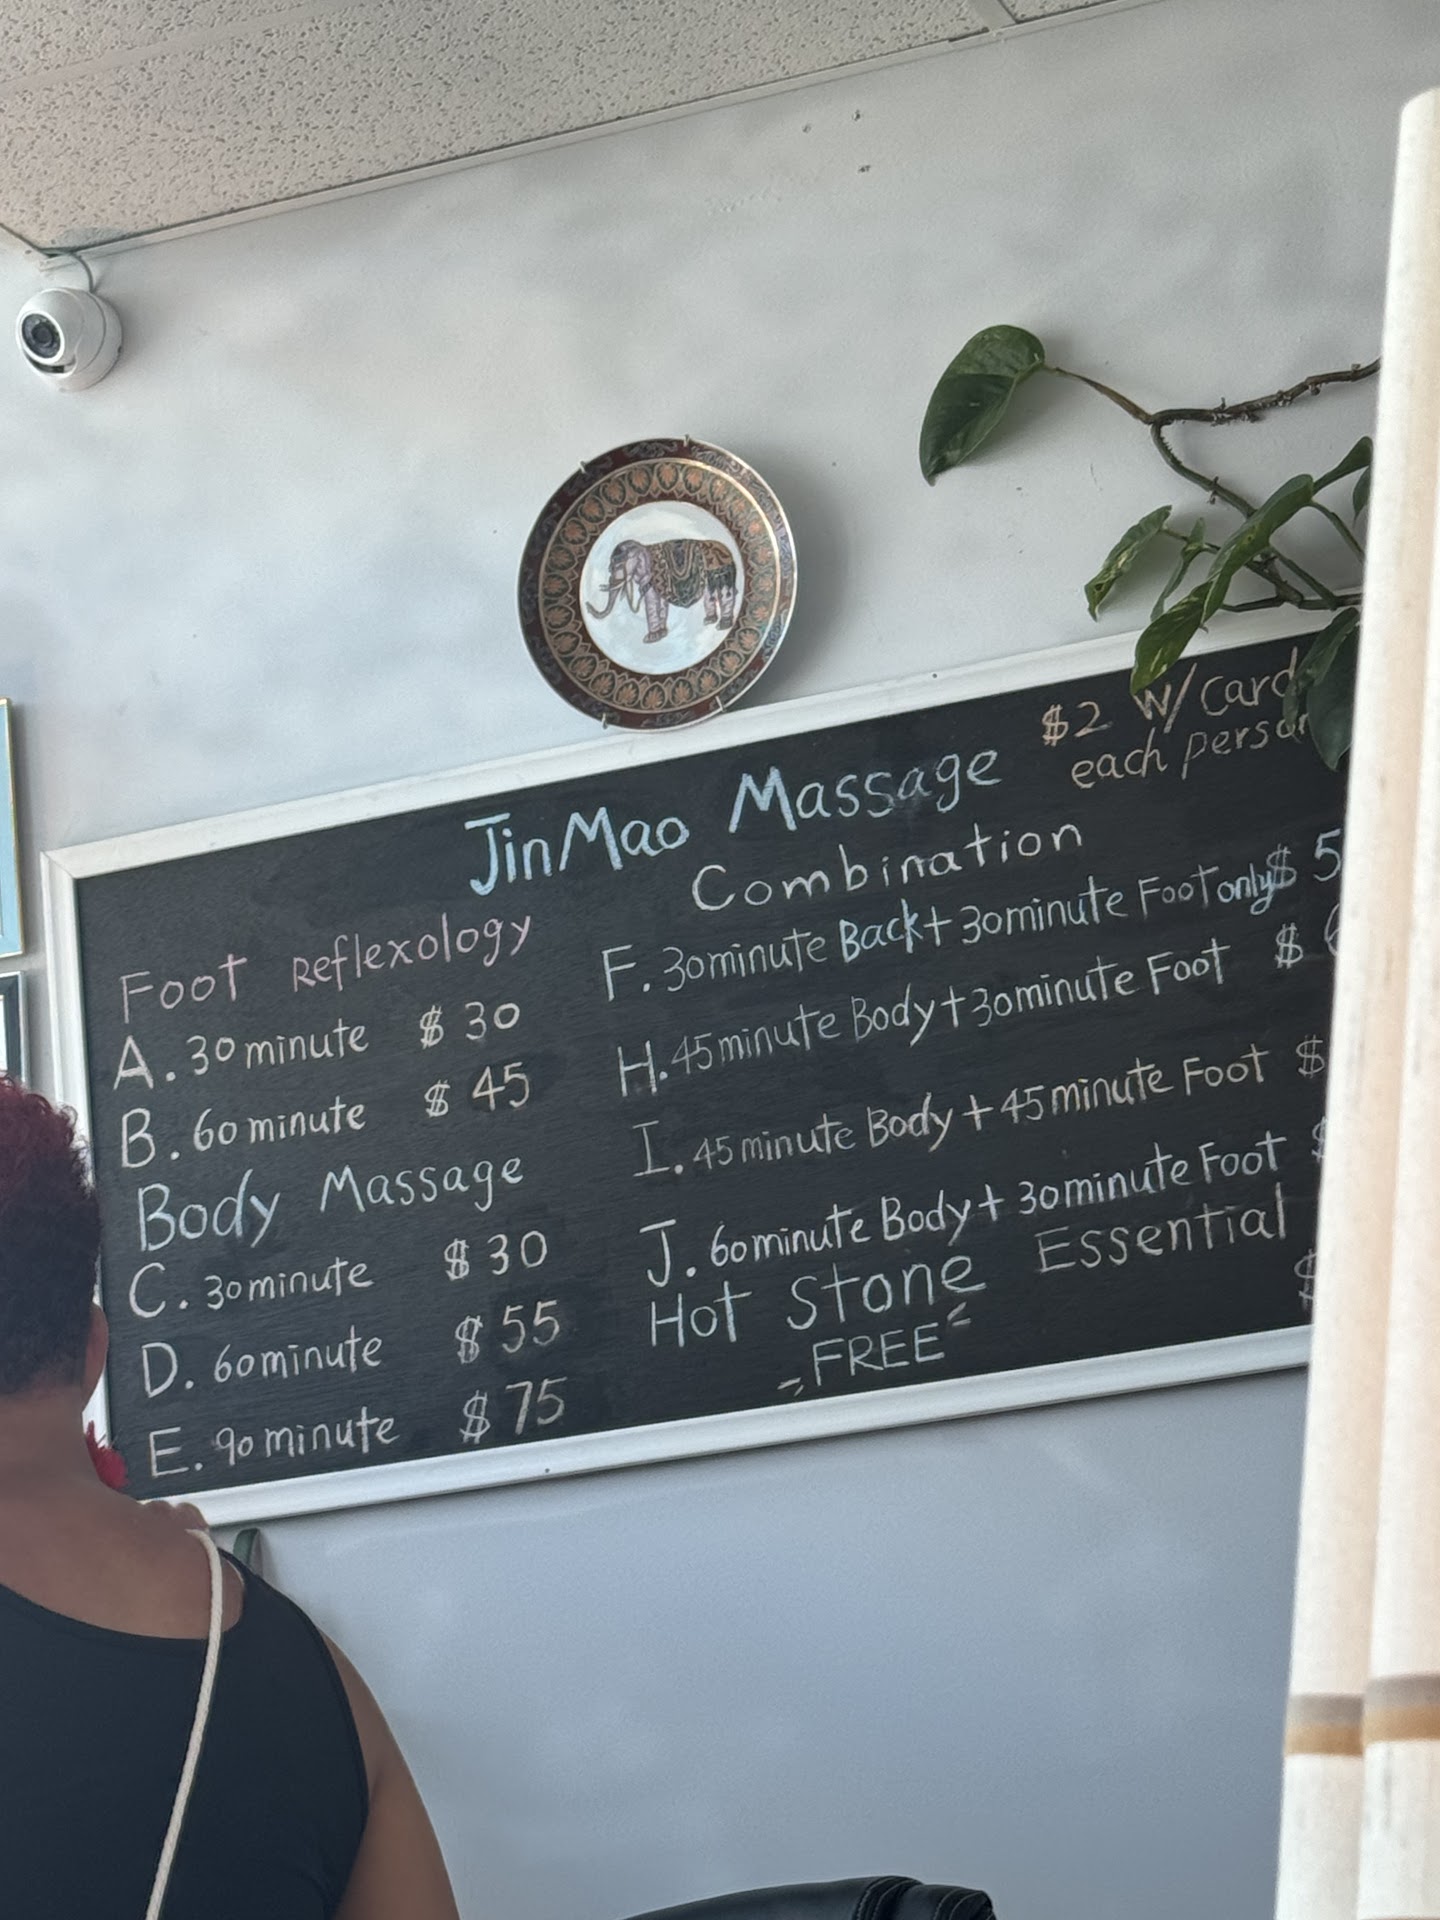 JinMao Massage
$2 W/ Card
each person
Foot Reflexology
A. 30 minute $30
B. 60 minute $45
Body Massage
C. 30 minute $30
D. 60 minute $55
E. 90 minute $75
Combination
F. 30 minute Back + 30 minute Foot only $ 5
H. 45 minute Body + 30 minute Foot $
I. 45 minute Body + 45 minute Foot $
J. 60 minute Body + 30 minute Foot $
Hot Stone Essential
FREE $